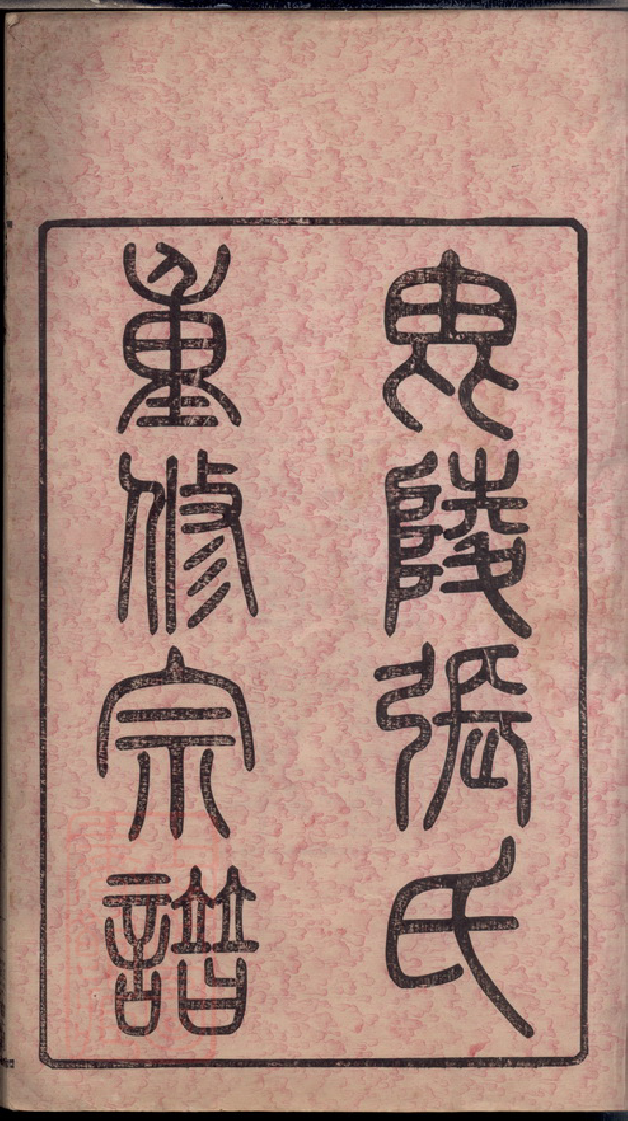 毘陵張氏
重修宗譜